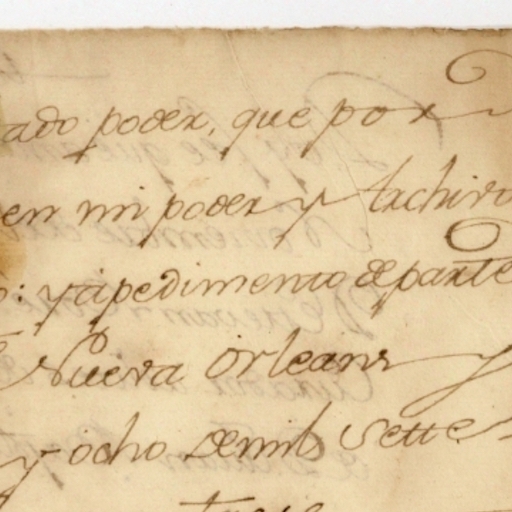 ado poder, que por
en mi poder y Archivo
o: y a pedimento de parte
Nueva Orleans
y ocho de mil Sette